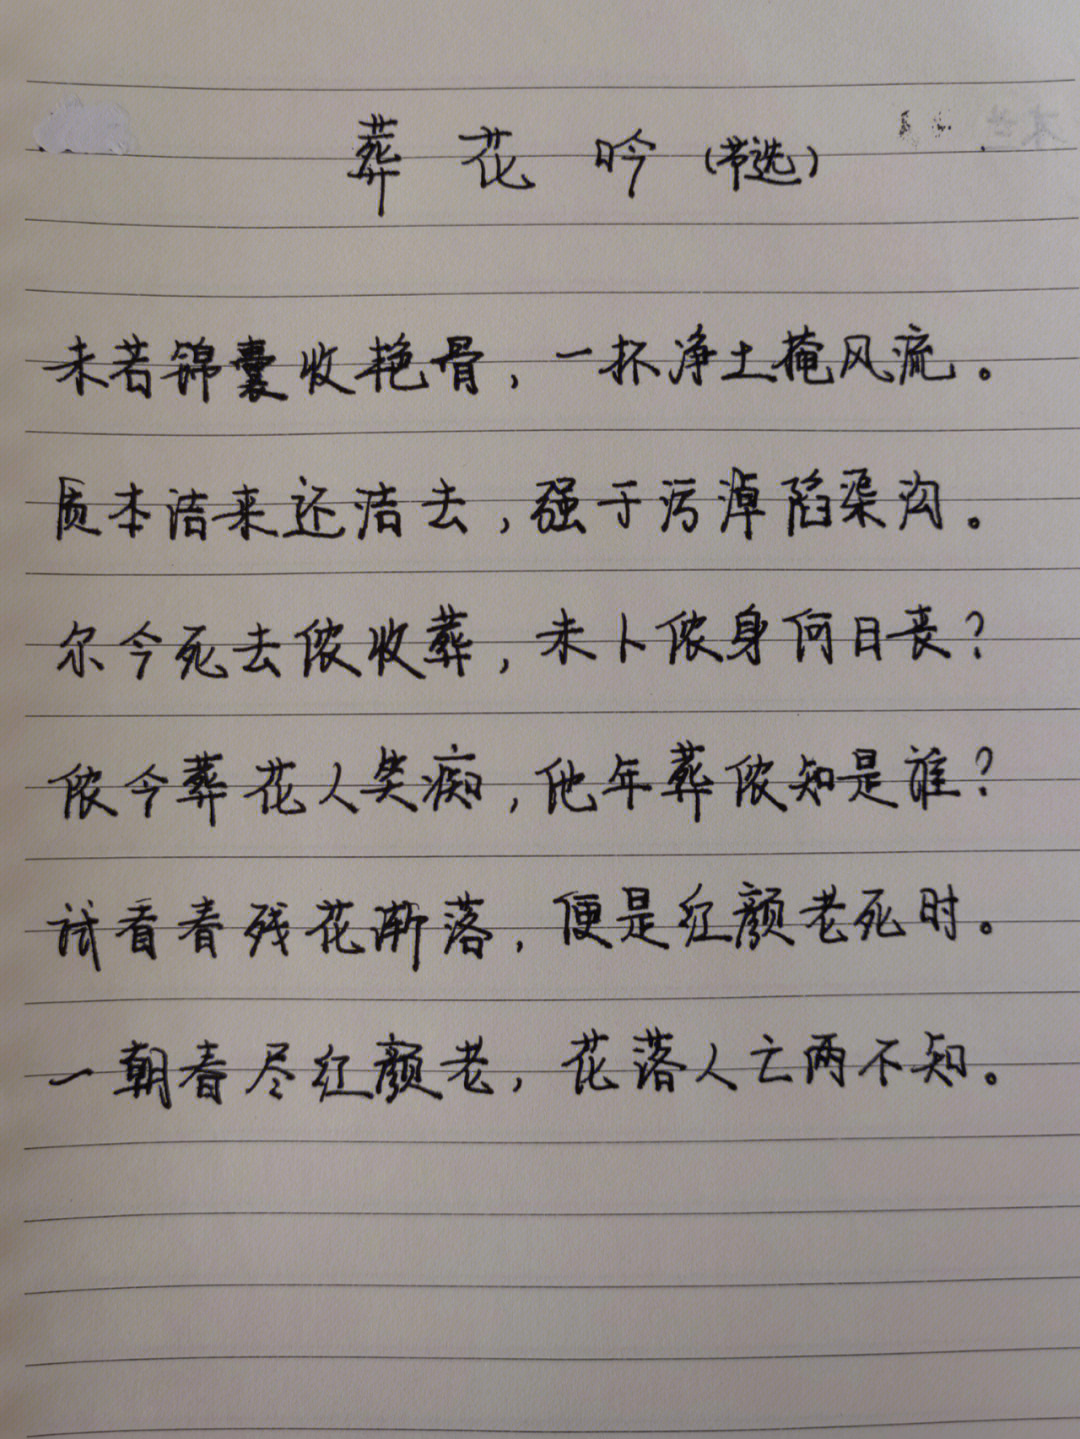 葬花吟（节选）
未若锦囊收艳骨，一抔净土掩风流。
质本洁来还洁去，强于污淖陷渠沟。
尔今死去侬收葬，未卜侬身何日丧？
侬今葬花人笑痴，他年葬侬知是谁？
试看春残花渐落，便是红颜老死时。
一朝春尽红颜老，花落人亡两不知。